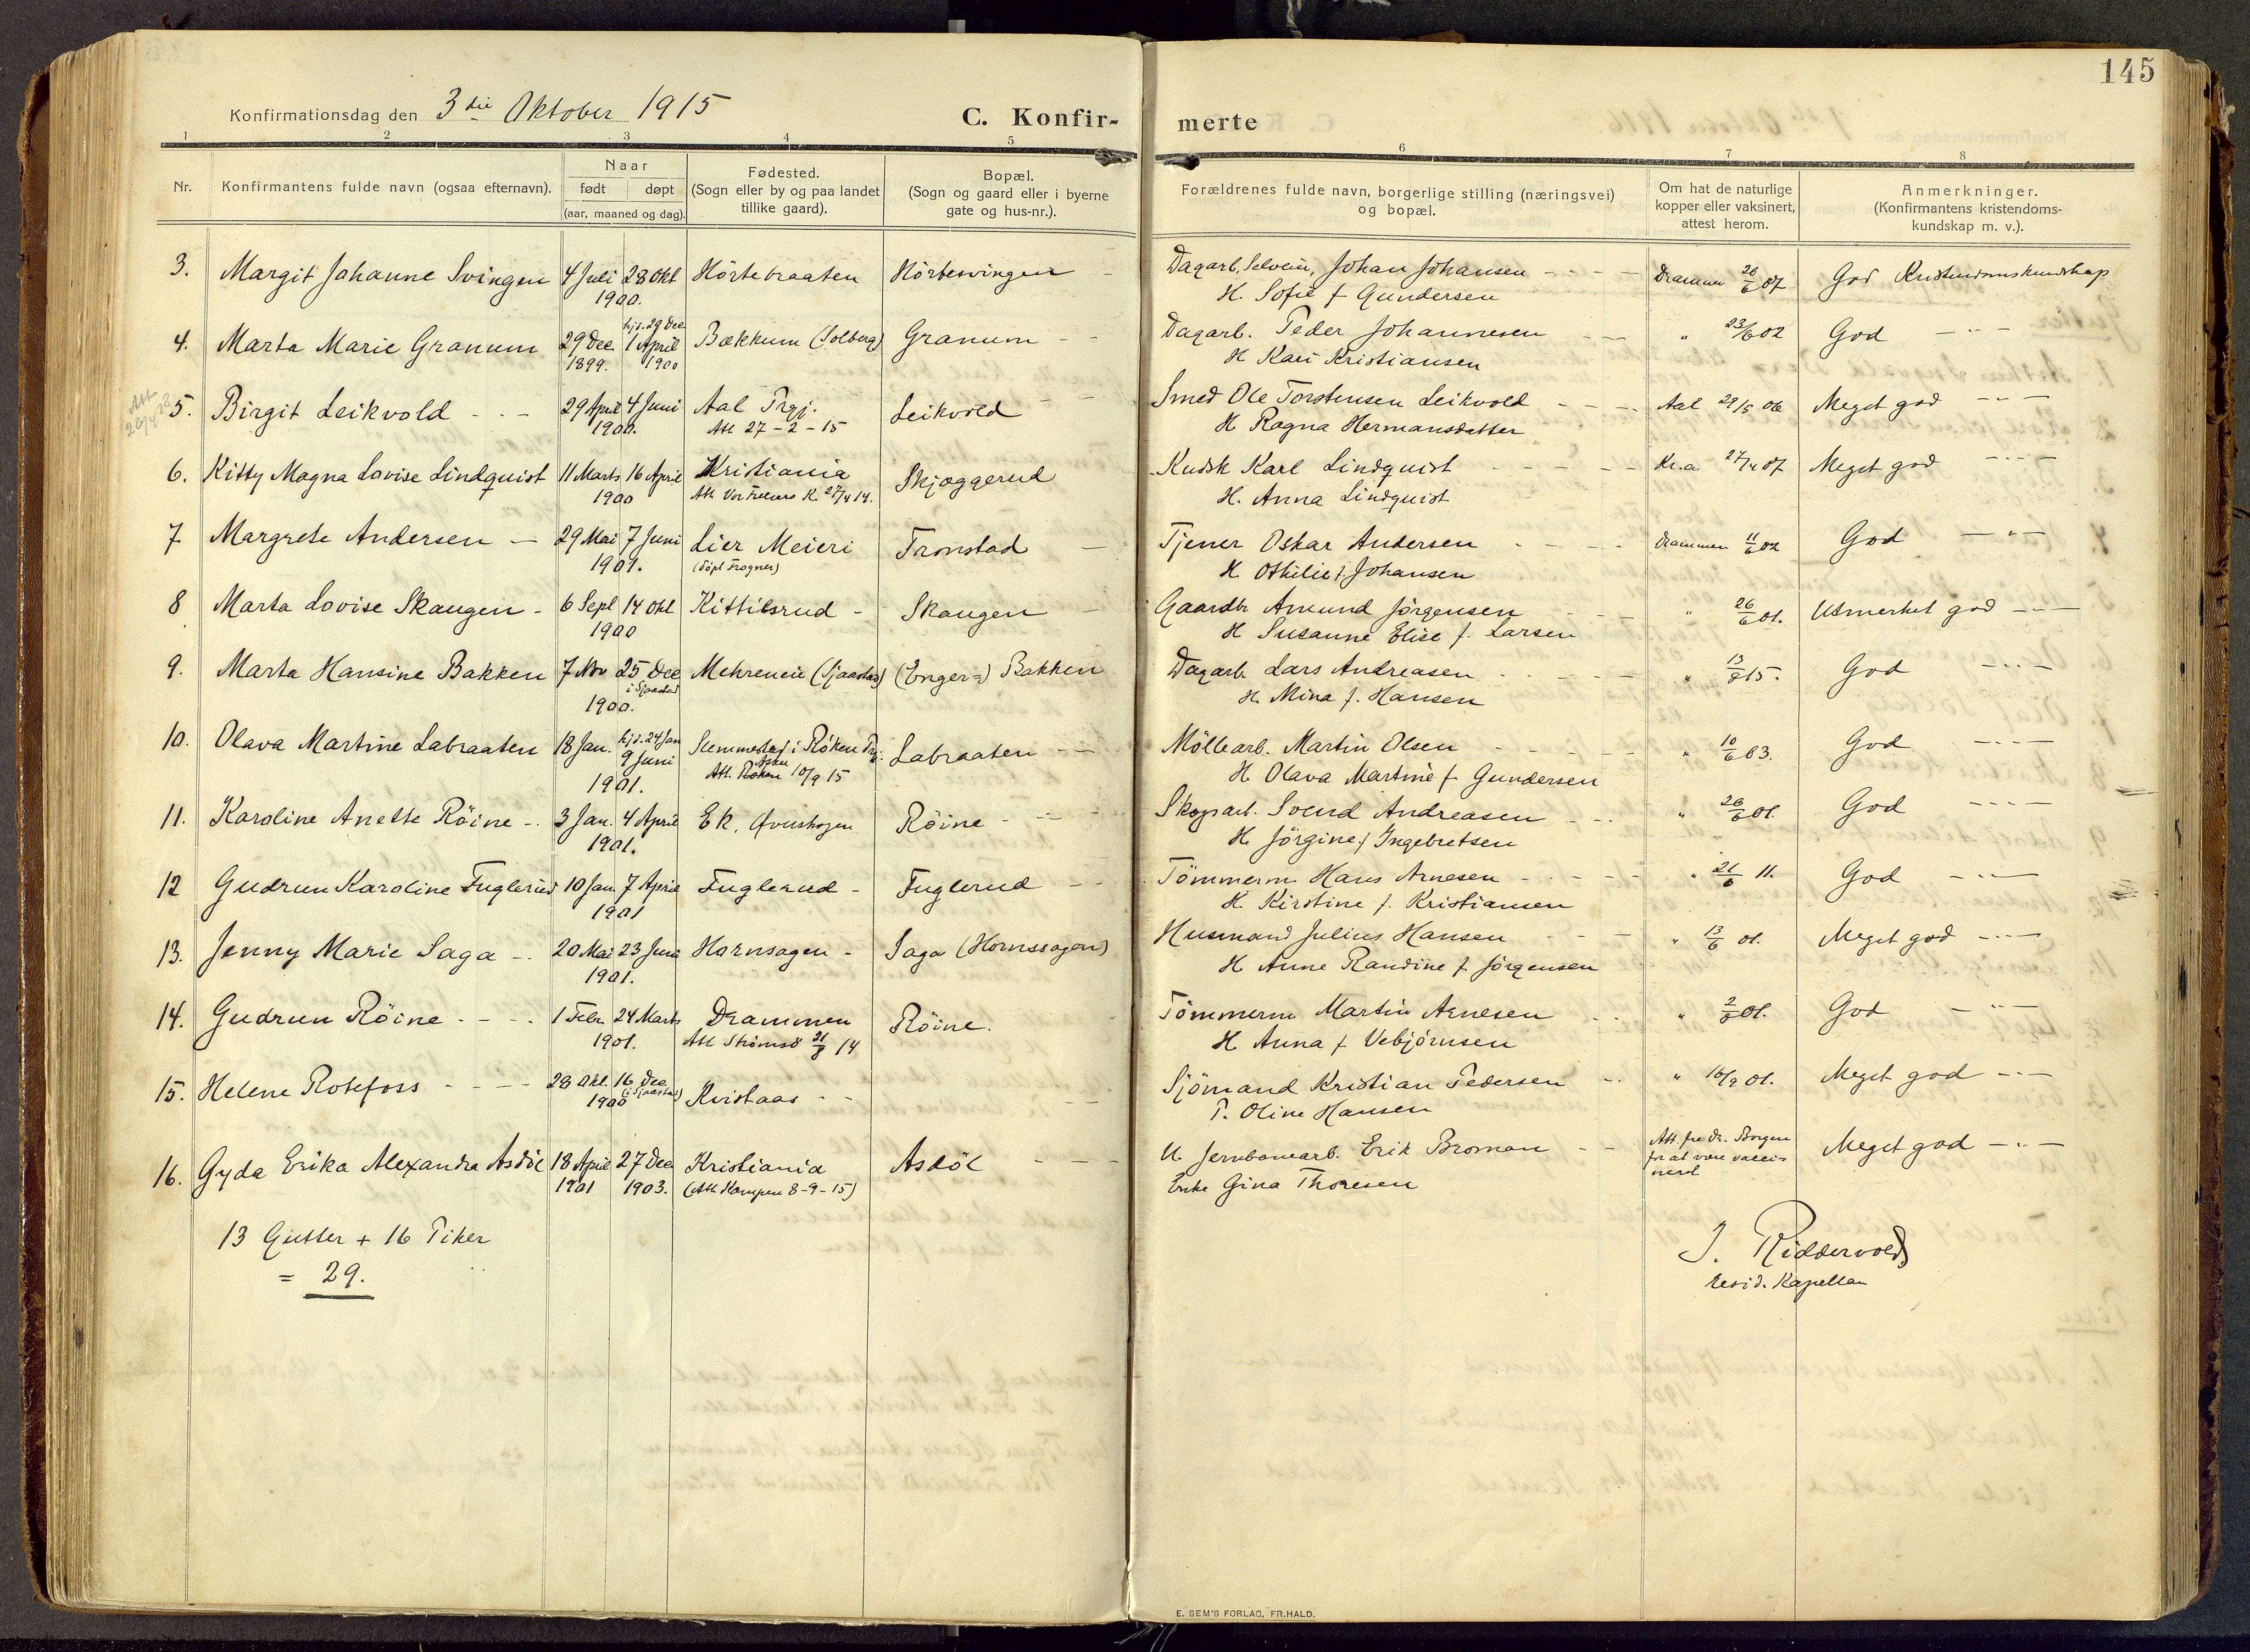 145
Konfirmationsdag den 3die Oktober 1915
C. Konfir-
merte
1 2 3 4 5 6 7 8
Nr.
Konfirmantens fulde navn (ogsaa efternavn).
Naar
født døpt
(aar, maaned og dag).
Fødested.
(Sogn eller by og paa landet
tillike gaard).
Bopæl.
(Sogn og gaard eller i byerne
gate og hus-nr.).
Forældrenes fulde navn, borgerlige stilling (næringsvei)
og bopæl.
Om hat de naturlige
kopper eller vaksinert,
attest herom.
Anmerkninger.
(Konfirmantens kristendoms-
kundskap m. v.).
3. Margit Johanne Svingen 4 Juli 28 Okt Hörtebraaten Hörtesvingen - Dagarb. Selveier, Johan Johansen - - - Drammen 26/6 07 God Kristendomskundskap
1900. H. Sofie f Gundersen
hjd. 29 Dec
4. Marta Marie Granum 29 Dec 1 April Bækkum (Solberg) Granum - - Dagarb. Peder Johannesen - - " 23/6 02 God - " -
1899. 1900 H Kari Kristiansen
5. Birgit Leikvold - - - 29 April 4 Juni Aal Prgj. Leikvold - - Smed Ole Torstensen Leikvold - - - Aal 29/5 06 Meget god - " -
1900. Att 27-2-15 H Ragna Hermansdatter
6. Kitty Magna Lovise Lindquist 11 Marts 16 April Kristiania Skjæggerud Kudsk Karl Lindquist - - - - Kr.a 27/4 07 Meget god - " -
1900 Att Vor Frelsers K. 27/4 14. H. Anna Lindquist
7 Margrete Andersen - 29 Mai 7 Juni Lier Meieri Tronstad - Tjener Oskar Andersen - - - - Drammen 11/6 02 God - " -
1901. (døpt Frogner) H. Othilie f Johansen
8 Marta Lovise Skaugen - 6 Sept 14 Okt Kittilsrud - Skaugen - Gaardbr Amund Jörgensen - - - " 26/6 01. Utmerket god - " -
1900 H Susanne Elise f. Larsen
9. Marta Hansine Bakken 7 Nov 25 Dec Mehreneie (Sjaastad) (Enger=) Bakken Dagarb. Lars Andreasen - - - " 13/8 15. God - " -
i Sjaastad
1900. H. Mina f. Hansen
10. Olava Martine Labraaten 18 Jan. hjd. 24 Jan Slemmestad i Röken Prgj. Labraaten - - Möllearb. Martin Olsen - - - - " 10/6 03. God - " -
9 Juni Asker
1901. Att. Röken 10/9 15 H. Olava Martine f Gundersen
11. Karoline Anette Röine - 3 Jan. 4 April Ek, Øvreskogen Röine - - - Skogsarb. Svend Andreasen - - " 26/6 01. God - " -
1901. H Jörgine f Ingebretsen
12 Gudrun Karoline Fuglerud 10 Jan 7 April Fuglerud - Fuglerud - - Tömmerm. Hans Arnesen - - - - " 21/6 11. God - " -
1901 H. Kirstine f. Kristiansen
13. Jenny Marie Saga - 20 Mai 23 Juni Hornsagen - Saga (Hornssagen) Husmand Julius Hansen - - - " 13/6 01. Meget god - " -
1901. H Anne Randine f Jörgensen
14. Gudrun Röine - - - 1 Febr. 24 Marts Drammen Röine. Tömmerm Martin Arnesen - - " 2/6 01. God - " -
1901. Att Strömsö 31/8 14 H Anna f Vebjörnsen
15. Helene Rotefoss - - - - 28 Okt. 16 Dec Kvistaas - - Sjömand Kristian Pedersen - - " 10/9 01. Meget god - " -
(i Sjaastad)
1900 P. Oline Hansen
16. Gyda Erika Alexandra Asdöl 18 April 27 Dec Kristiania Asdöl - - - U. Jernbanearb. Erik Broman - - Att. fra Dr. Borgen Meget god - " -
1901 1903. (Att Kampen 8-9-15) Enke Gina Thoresen for at være vacci-
nert
13 Gutter + 16 Piker
= 29.
J. Riddervold
resid. Kapellan
E. SEM'S FORLAG, FR.HALD.